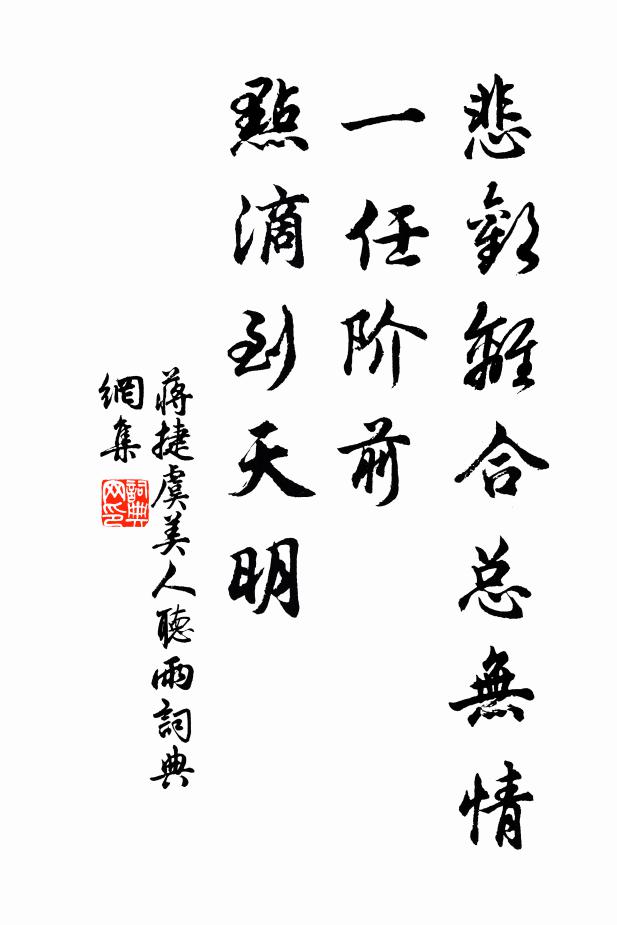 悲歡離合总無情
一任阶前
點滴到天明
蔣捷虞美人聽雨詞典
網集
詞典
网印